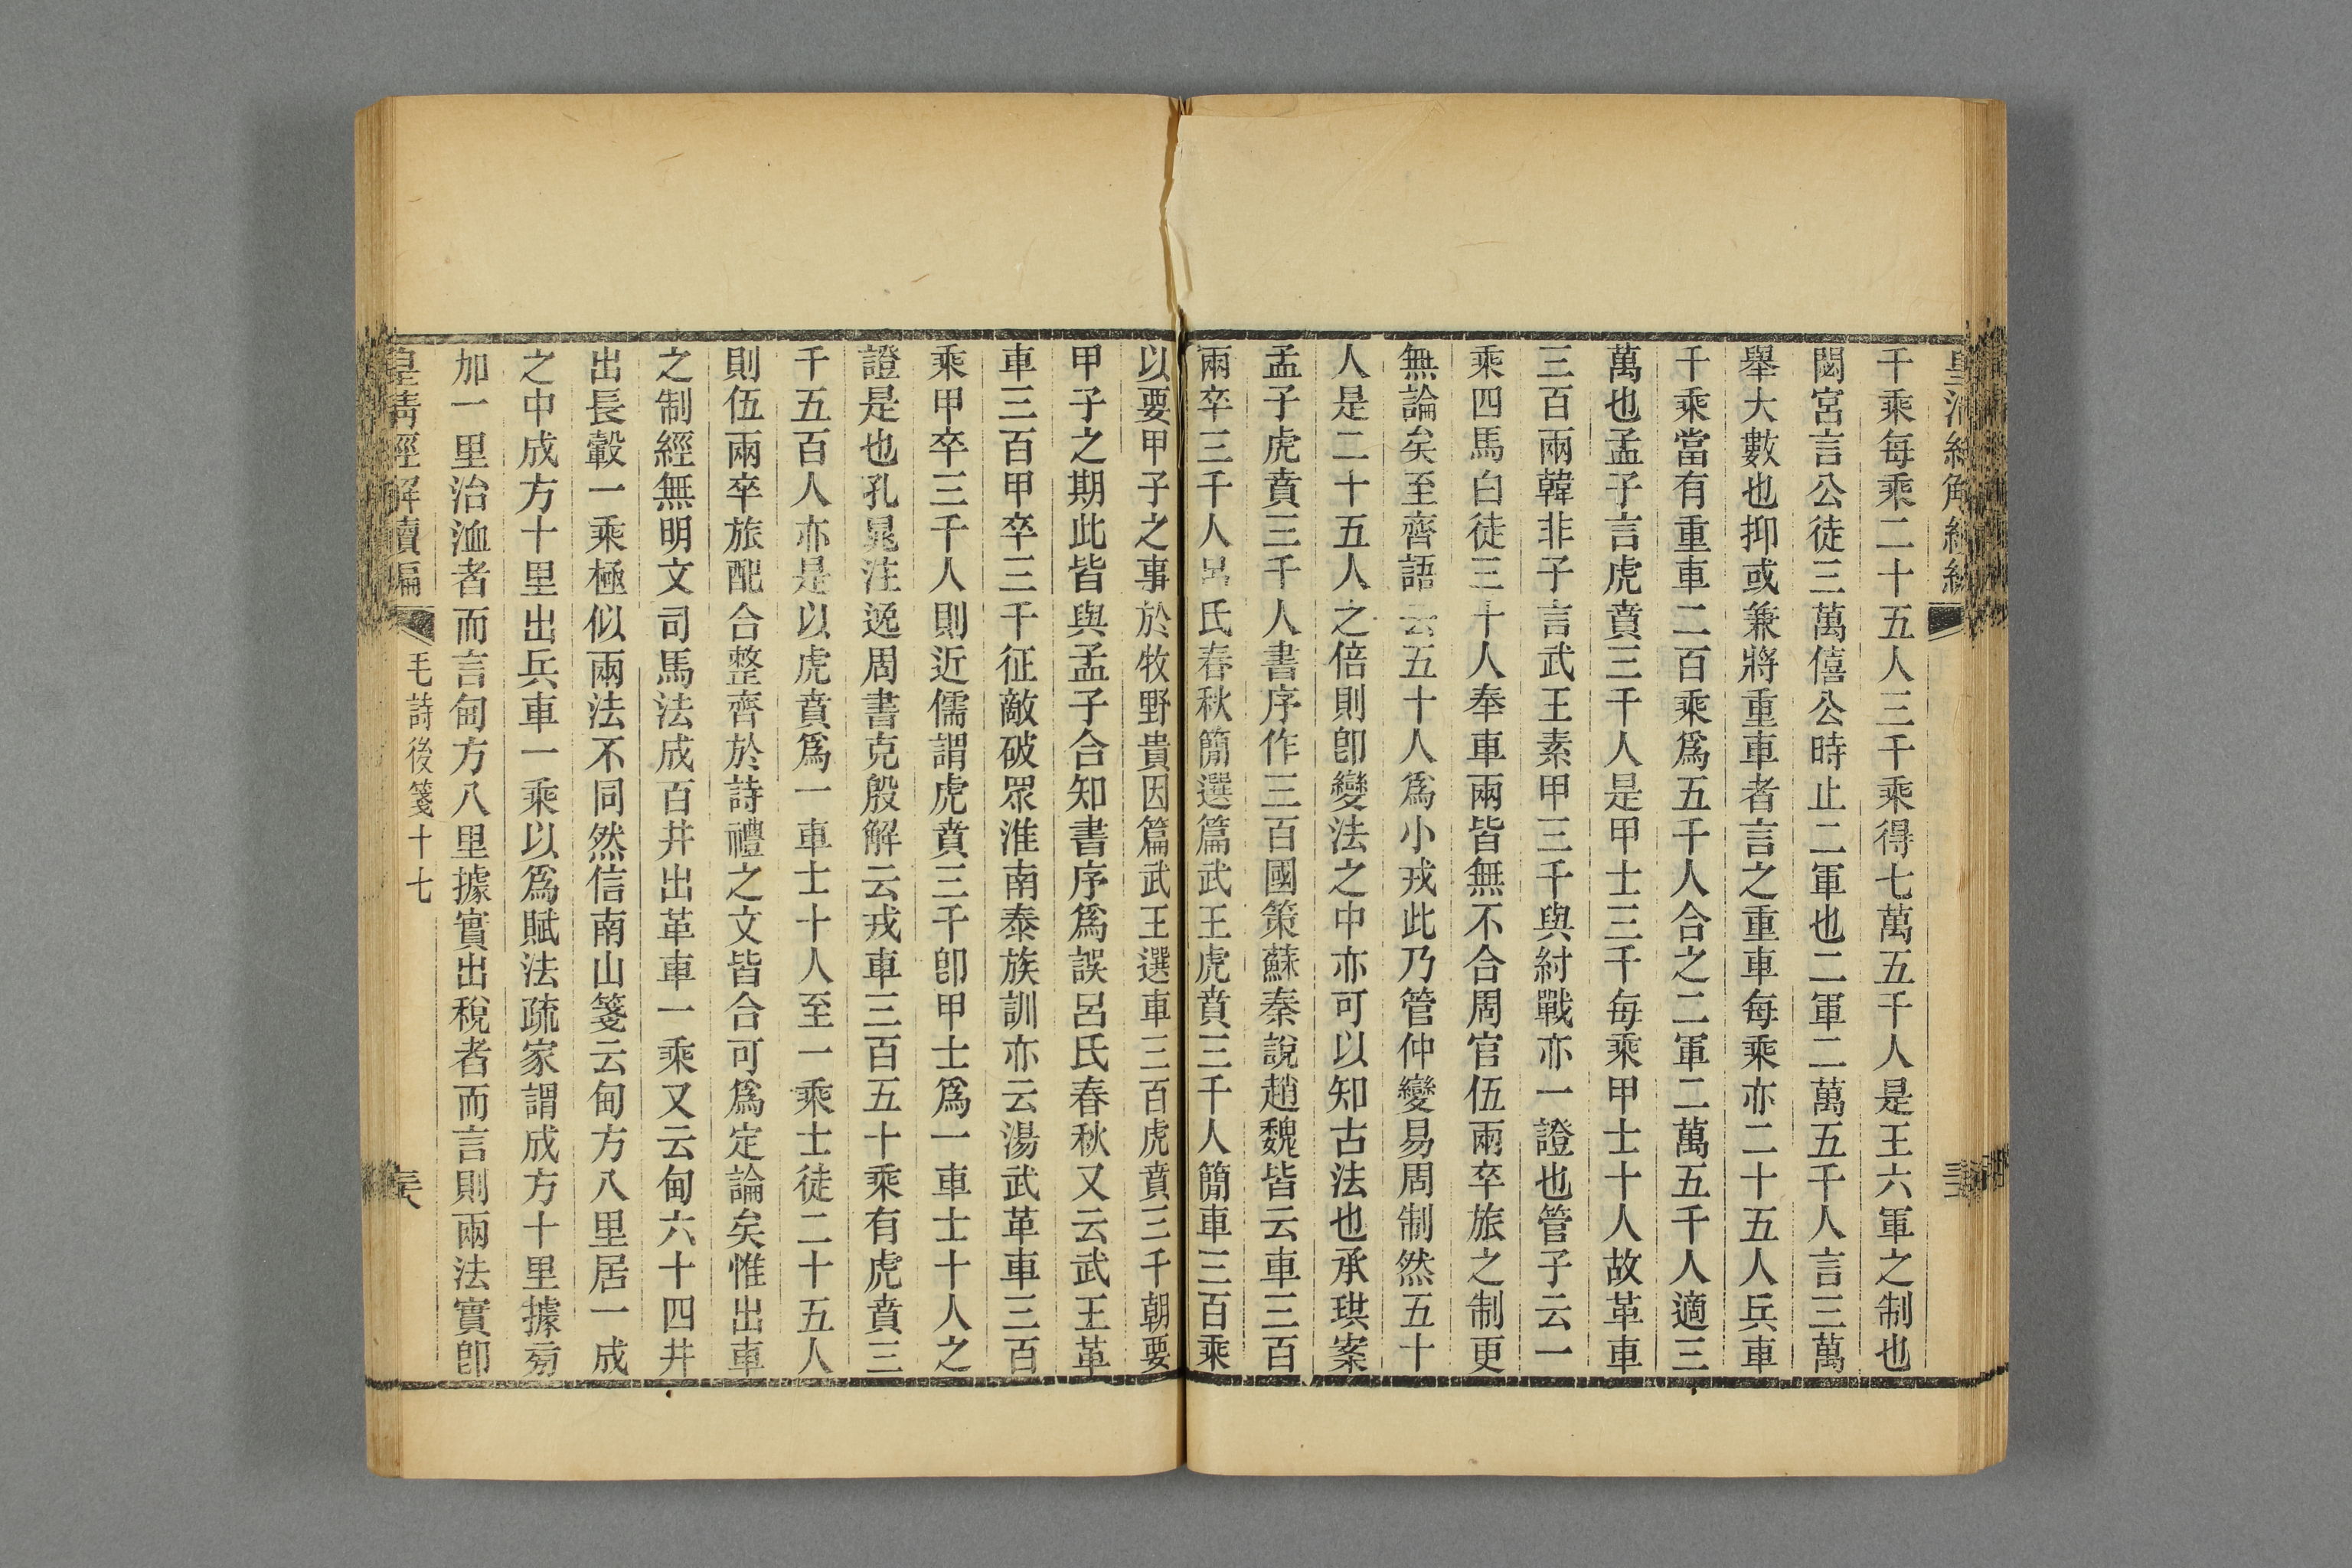 千乘每乘二十五人三千乘得七萬五千人是王六軍之制也
閟宮言公徒三萬僖公時止二軍也二軍二萬五千人言三萬
舉大數也抑或兼將重車者言之重車每乘亦二十五人兵車
千乘當有重車二百乘爲五千人合之二軍二萬五千人適三
萬也孟子言虎賁三千人是甲士三千每乘甲士十人故革車
三百兩韓非子言武王素甲三千與紂戰亦一證也管子云一
乘四馬白徒三十人奉車兩皆無不合周官伍兩卒旅之制更
無論矣至齊語云五十人爲小戎此乃管仲變易周制然五十
人是二十五人之倍則卽變法之中亦可以知古法也承珙案
孟子虎賁三千人書序作三百國策蘇秦說趙魏皆云車三百
兩卒三千人呂氏春秋簡選篇武王虎賁三千人簡車三百乘
以要甲子之事於牧野貴因篇武王選車三百虎賁三千朝要
甲子之期此皆與孟子合知書序爲誤呂氏春秋又云武王革
車三百甲卒三千征敵破眾淮南泰族訓亦云湯武革車三百
乘甲卒三千人則近儒謂虎賁三千卽甲士爲一車士十人之
證是也孔晁注逸周書克殷解云戎車三百五十乘有虎賁三
千五百人亦是以虎賁爲一車士十人至一乘士徒二十五人
則伍兩卒旅配合整齊於詩禮之文皆合可爲定論矣惟出車
之制經無明文司馬法成百井出革車一乘又云甸六十四井
出長轂一乘極似兩法不同然信南山箋云甸方八里居一成
之中成方十里出兵車一乘以爲賦法疏家謂成方十里據旁
加一里治洫者而言甸方八里據實出稅者而言則兩法實卽
皇清經解續編
毛詩後箋十七